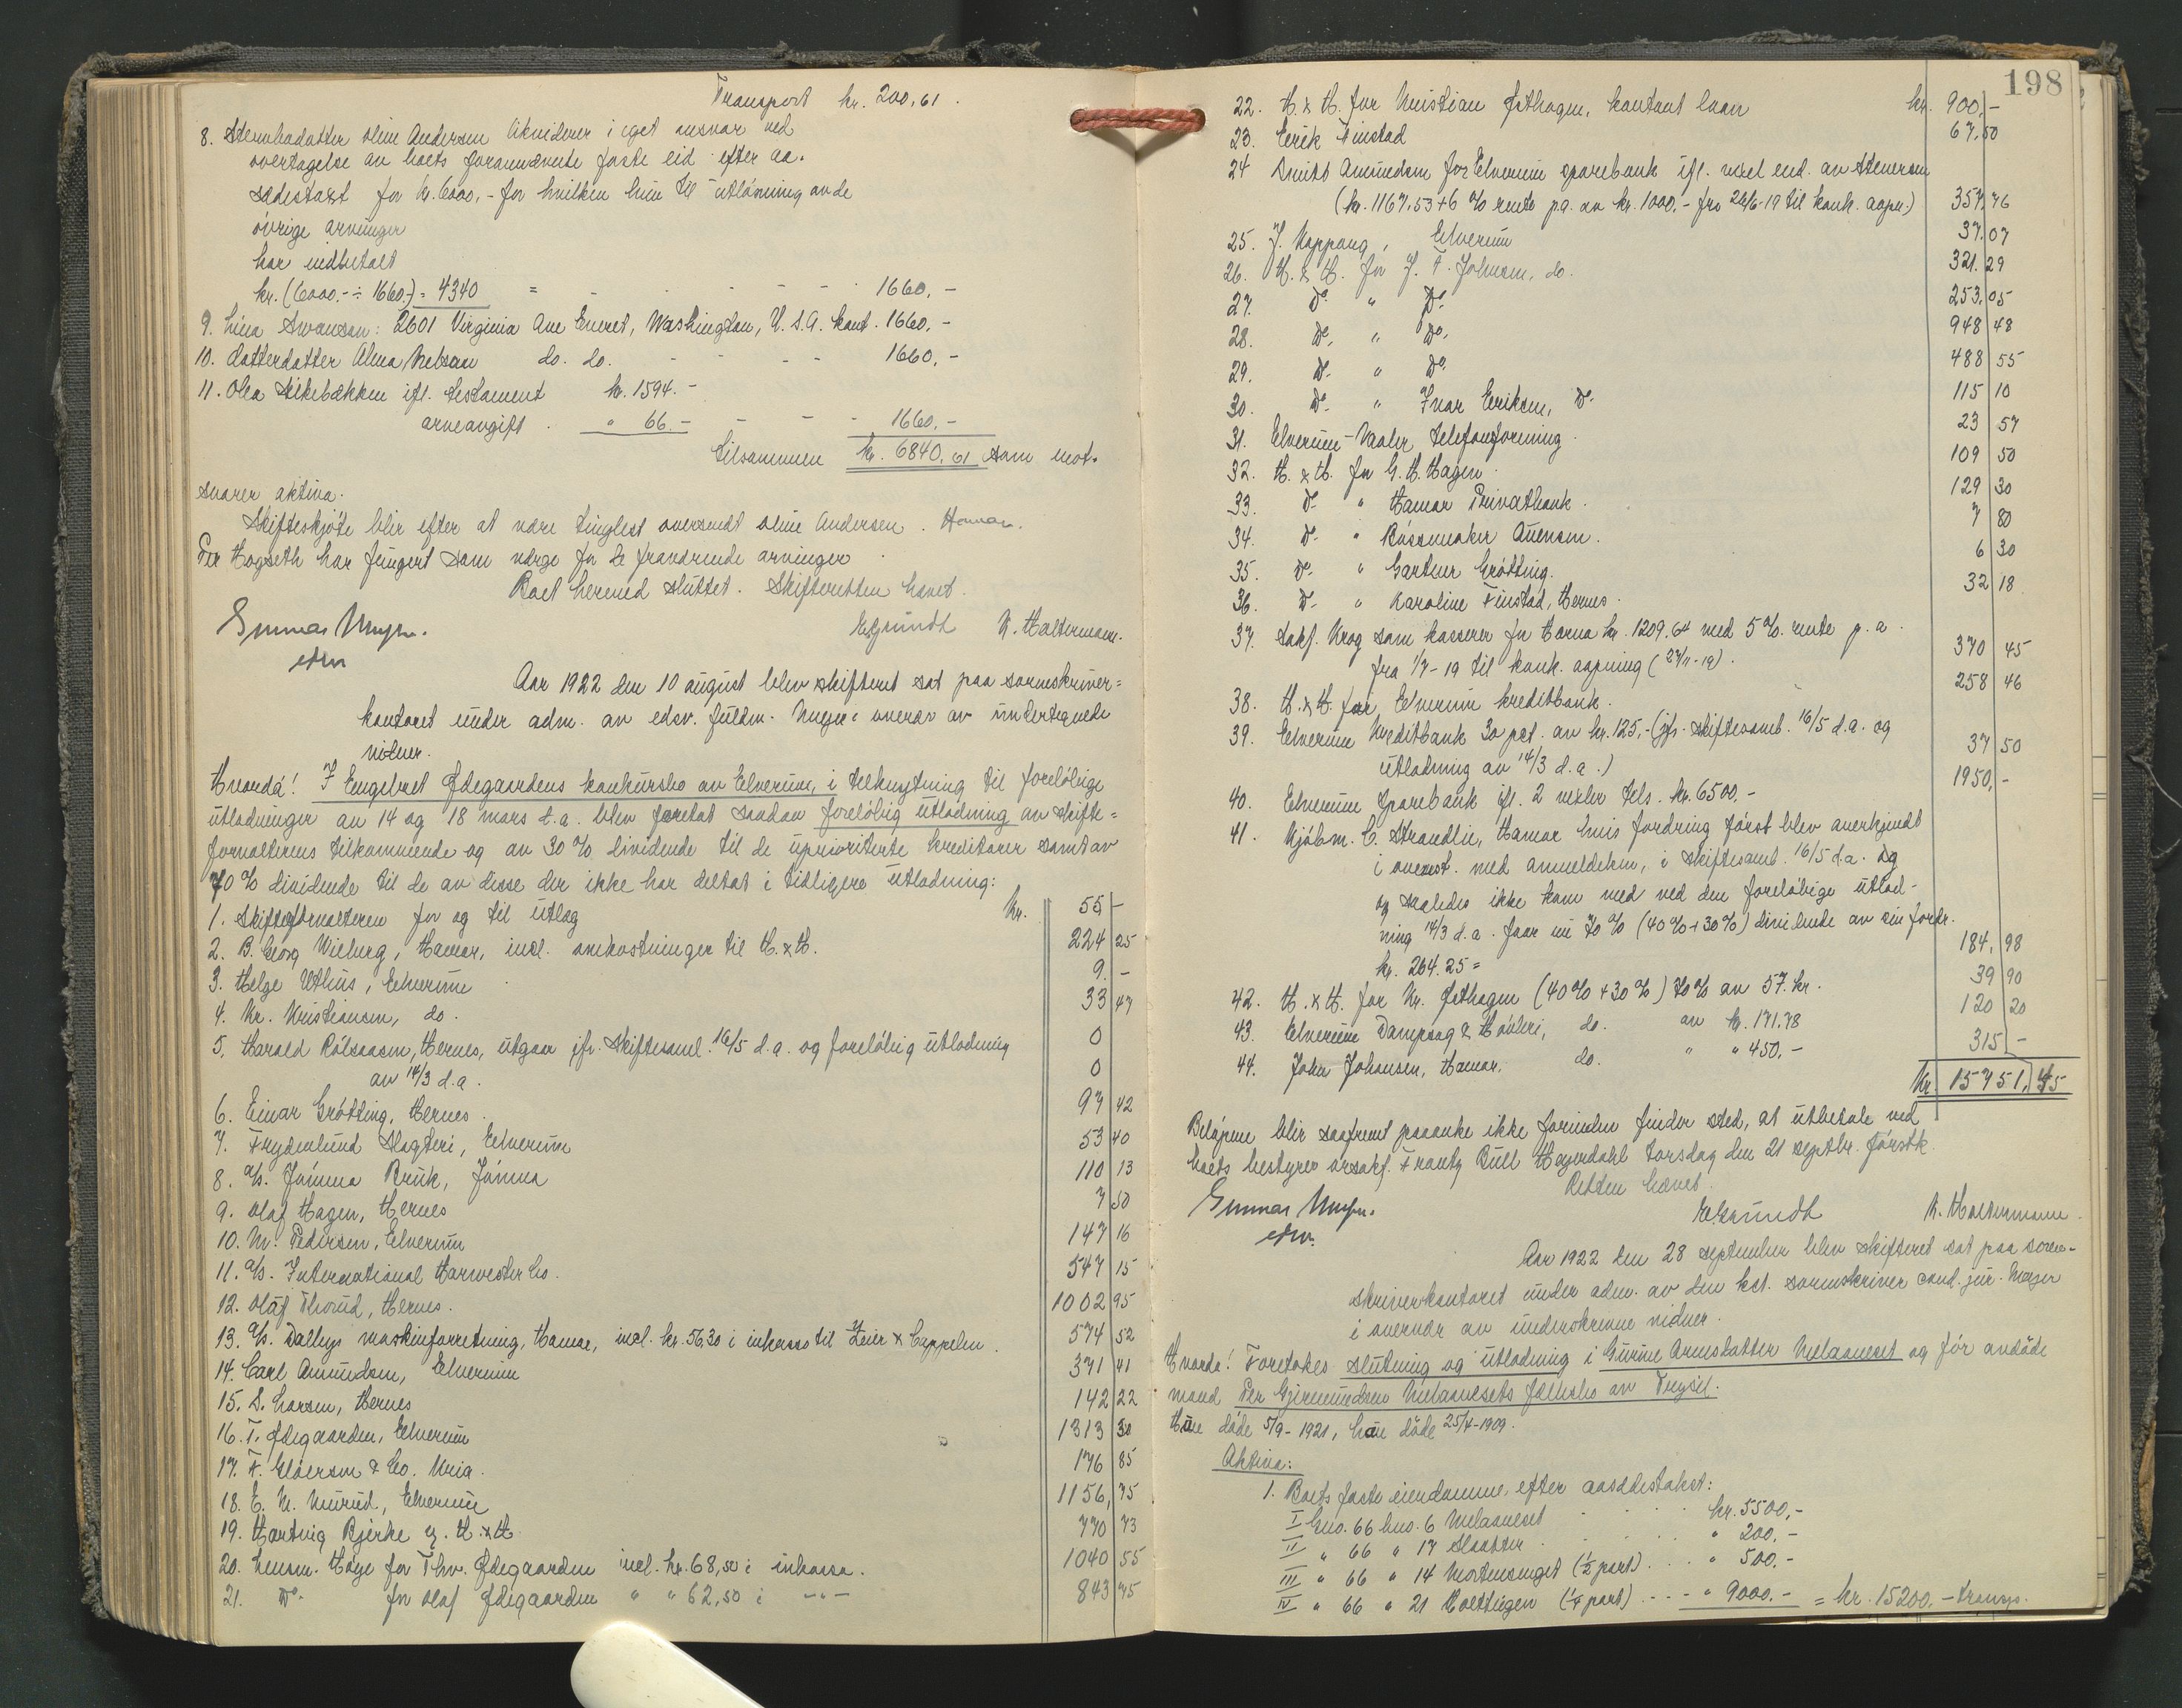 Transport kr. 200,61.
8. Stenbadatter Oline Andersen likviderer i eget ansvar ved
overtagelse av boets forannævnte faste eid. efter aa-
sædestaxt for kr. 6000,- for hvilken hun til utløsning av de
øvrige arvinger
har indbetalt
kr. (6000.- ÷ 1660.-) = 4340 = - - - - - 1660,-
9. Lina Swanson: 2601 Virginia Ave Everet, Washington, U.S.A. kont. 1660,-
10. Datterdatter Alma Nelson do. do. - - - - 1660,-
11. Olea Stikebækken ifl. testament kr. 1594.-
arveavgift . " 66.- - - - 1660,-
tilsammen kr. 6840,61 som mot-
svarer aktiva.
Skifteskjøte blir efter at være tinglest oversendt Oline Andersen.
Per Hogseth har fungert som værge for de fraværende arvinger.
Boet hermed sluttet. Skifteretten hævet.
Gunnar Meyer. EGrundt K. Haltermann.
edsv
Aar 1922 den 10 august blev skifteret sat paa sorenskriver=
kontoret under adm. av edsv. fuldm. Meyer i overvær av undertegnede
vidner.
Hvorda! I Engebret Ødegaardens konkursbo av Elverum, i tilknytning til foreløbige
utlodninger av 14 og 18 mars d.a. blev foretat saadan foreløbig utlodning av skifte=
forvalterens tilkommende og av 30% dividende til de uprioriterte kreditorer samt av
70% dividende til de av disse der ikke har deltat i tidligere utlodning:
1. Skifteforvalteren for og til utlæg kr. 55 -
2. B. Georg Wiberg, Hamar, incl. omkostninger til H. & H. 224 25
3. Helge Uthus, Elverum 9. -
4. Kr. Kristiansen, do. 33 47
5. Harald Rölsaasen, Hernes, utgaar jfr. Skiftesaml. 16/5 d.a. og foreløbig utlodning 0
av 14/3 d.a. 0
6. Einar Grötting, Hernes. 97 42
7. Frydenlund Slagteri, Elverum 53 40
8. A/s. Jömna Bruk, Jömna 110 13
9. Olaf Hagen, Hernes 7 50
10. M. Pedersen, Elverum 147 16
11. A/s. International Harvester Co. 547 15
12. Olaf Thorud, Hernes. 1002 95
13. A/s. Dallerys maskinforretning, Hamar, incl. kr. 56,30 i inkasso til Zeier & Cappelen. 574 52
14. Carl Amundsen, Elverum 371 41
15. S. Larsen, Hernes 142 22
16. T. Ødegaarden, Elverum 1313 30
17. F. Glöersen & Co. Kria. 176 85
18. E. N. Murud, Elverum 1156, 75
19. Hartvig Bjerke v. H. & H. 770 73
20. Lensm. Høye for Thv. Ødegaarden incl. kr. 68,50 i inkasso. 1040 55
21. Do. for Olaf Ødegaarden " " 62,50 i -"- 843 75
198
22. H. & H. for Kristian Østhagen, kontant laan kr. 900,-
23. Eerik Finstad 67,50
24 Smits Amundsen for Elverum sparebank ifl. vexel end. av Stenersen
(kr. 1167,53 + 6% rente p.a. av kr. 1000.- fra 26/6-19 til konk. aapn.) 357,76
25. J. Koppang, Elverum 37.07
26. H. & H. for J. F. Johnsen, do. 321.29
27. Do. " Do. 253,05
28. Do. " Do. 948 48
29. Do. " Do. 488 55
30. Do. " Ivar Eriksen, Do. 115 10
31. Elverum-Vaaler telefonforening. 23 57
32. H. & H. for G. H. Hagen. 109 50
33. Do. " Hamar Privatbank. 129 30
34. Do. " Bössemaker Auensen. 7 80
35. Do. " Gartner Grötting. 6 30
36. Do. " Karoline Finstad, Hernes. 32 18
37. Sakf. Krog som kasserer for Horna kr. 1209.64 med 5%. rente p.a.
fra 1/7-19 til konk. aapning (27/11-19). 370 45
38. H. & H. for Elverum kreditbank. 258 46
39. Elverum Kreditbank 30 pct. av kr. 125,- (jfr. skiftesaml. 16/5 d.a. og
utlodning av 14/3 d.a.) 37 50
40. Elverum Sparebank ifl. 2 vexler tils. kr. 6500,- 1950,-
41. Kjøbm. C. Strandlie, Hamar hvis fordring först blev anerkjendt
i overenst. med anmeldelsen, i skiftesaml. 16/5 d.a. og
og saaledes ikke kom med ved den foreløbige utlod-
ning 14/3 d.a. faar nu 70% (40%+30%) dividende av sin fordr.
kr. 264.25 = 184, 98
42. H. & H. for Kr. Østhagen (40% + 30%) 70% av 57. kr. 39 90
43. Elverum Dampsag & Høvleri, do. av kr. 171.78 120 20
44. John Johansen, Hamar. do. " " 450.- 315 -
kr. 15751,45
Beløpene blir saafremt paaanke ikke forinden finder sted, at utbetale ved
boets bestyrer orsakf. Frantz Bull Heyerdahl torsdag den 21 septbr. førstk.
Retten hævet.
Gunnar Meyer. EGrundt K. Haltermann.
edsv.
Aar 1922 den 28 september blev skifteret sat paa soren-
skriverkontoret under adm. av den kst. sorenskriver cand. jur. Meyer
i overvær av underskrevne vidner.
Hvorda! Foretokes slutning og utlodning i Gurine Arnesdatter Melaaneset og før avdøde
mand Per Gjermundsen Melaanesets fællesbo av Trysil.
Hun døde 5/9-1921, han døde 25/4-1909.
Aktiva:
1. Boets faste eiendomme, efter aasædestakst:
I Gno. 66 bno. 6 Melaaneset . . . kr. 5500,-
II " 66 " 17 Slaatten . . . " 200.-
III " 66 " 14 Mortensæget (1/2 part) . . . " 500.-
IV " 66 " 21 Roettingen (1/4 part) . . . - " 9000.- = kr. 15200.- transp.